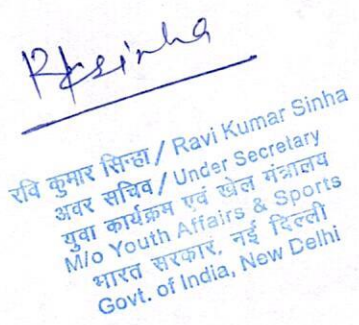 RKsinha
रवि कुमार सिन्हा / Ravi Kumar Sinha
अवर सचिव / Under Secretary
युवा कार्यक्रम एवं खेल मंत्रालय
M/o Youth Affairs & Sports
भारत सरकार, नई दिल्ली
Govt. of India, New Delhi